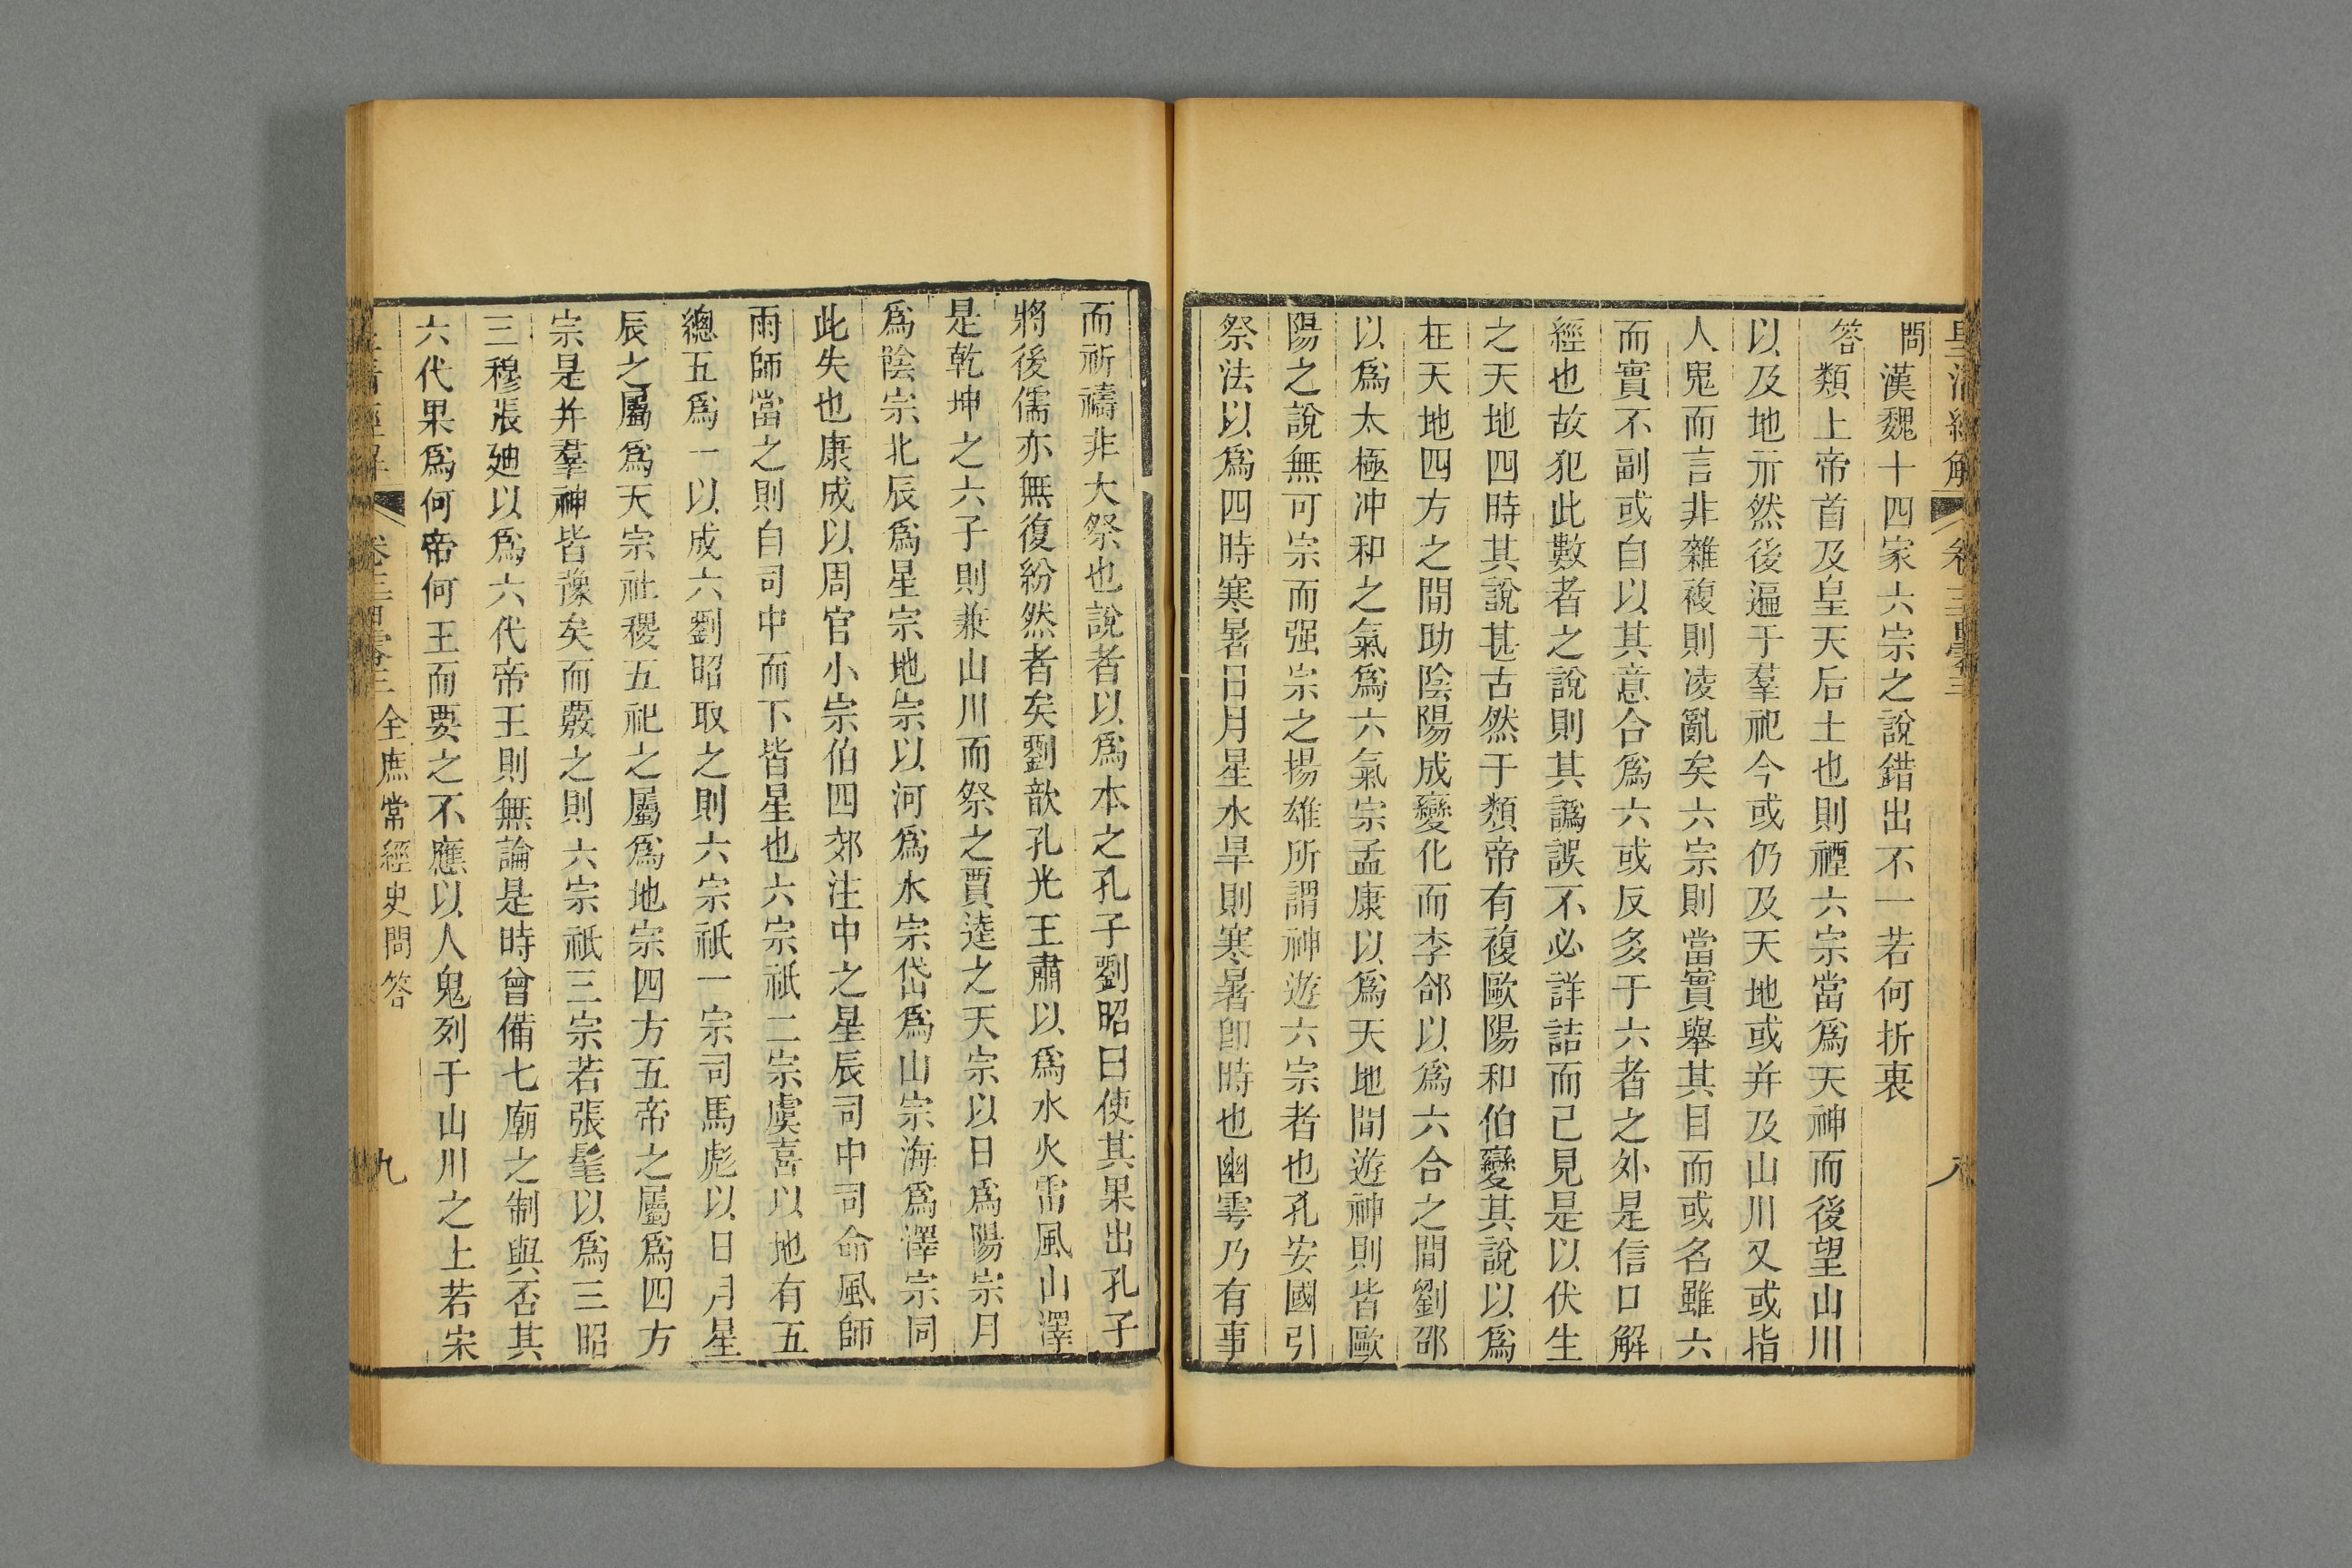 皇清經解 卷三百零三 八
問漢魏十四家六宗之說錯出不一若何折衷
答類上帝首及皇天后土也則禋六宗當爲天神而後望山川
以及地示然後遍于羣祀今或仍及天地或并及山川又或指
人鬼而言非雜複則凌亂矣六宗則當實舉其目而或名雖六
而實不副或自以其意合爲六或反多于六者之外是信口解
經也故犯此數者之說則其譌誤不必詳詰而已見是以伏生
之天地四時其說甚古然于類帝有複歐陽和伯變其說以爲
在天地四方之間助陰陽成變化而李郃以爲六合之間劉邵
以爲太極冲和之氣爲六氣宗孟康以爲天地間遊神則皆歐
陽之說無可宗而强宗之揚雄所謂神遊六宗者也孔安國引
祭法以爲四時寒暑日月星水旱則寒暑卽時也幽雩乃有事
而祈禱非大祭也說者以爲本之孔子劉昭曰使其果出孔子
將後儒亦無復紛然者矣劉歆孔光王肅以爲水火雷風山澤
是乾坤之六子則兼山川而祭之賈逵之天宗以日爲陽宗月
爲陰宗北辰爲星宗地宗以河爲水宗岱爲山宗海爲澤宗同
此失也康成以周官小宗伯四郊注中之星辰司中司命風師
雨師當之則自司中而下皆星也六宗祇二宗虞喜以地有五
總五爲一以成六劉昭取之則六宗祇一宗司馬彪以日月星
辰之屬爲天宗社稷五祀之屬爲地宗四方五帝之屬爲四方
宗是并羣神皆豫矣而覈之則六宗祇三宗若張髦以爲三昭
三穆張廸以爲六代帝王則無論是時曾備七廟之制與否其
六代果爲何帝何王而要之不應以人鬼列于山川之上若宋
皇清經解 卷三百零三 全庶常經史問答 九